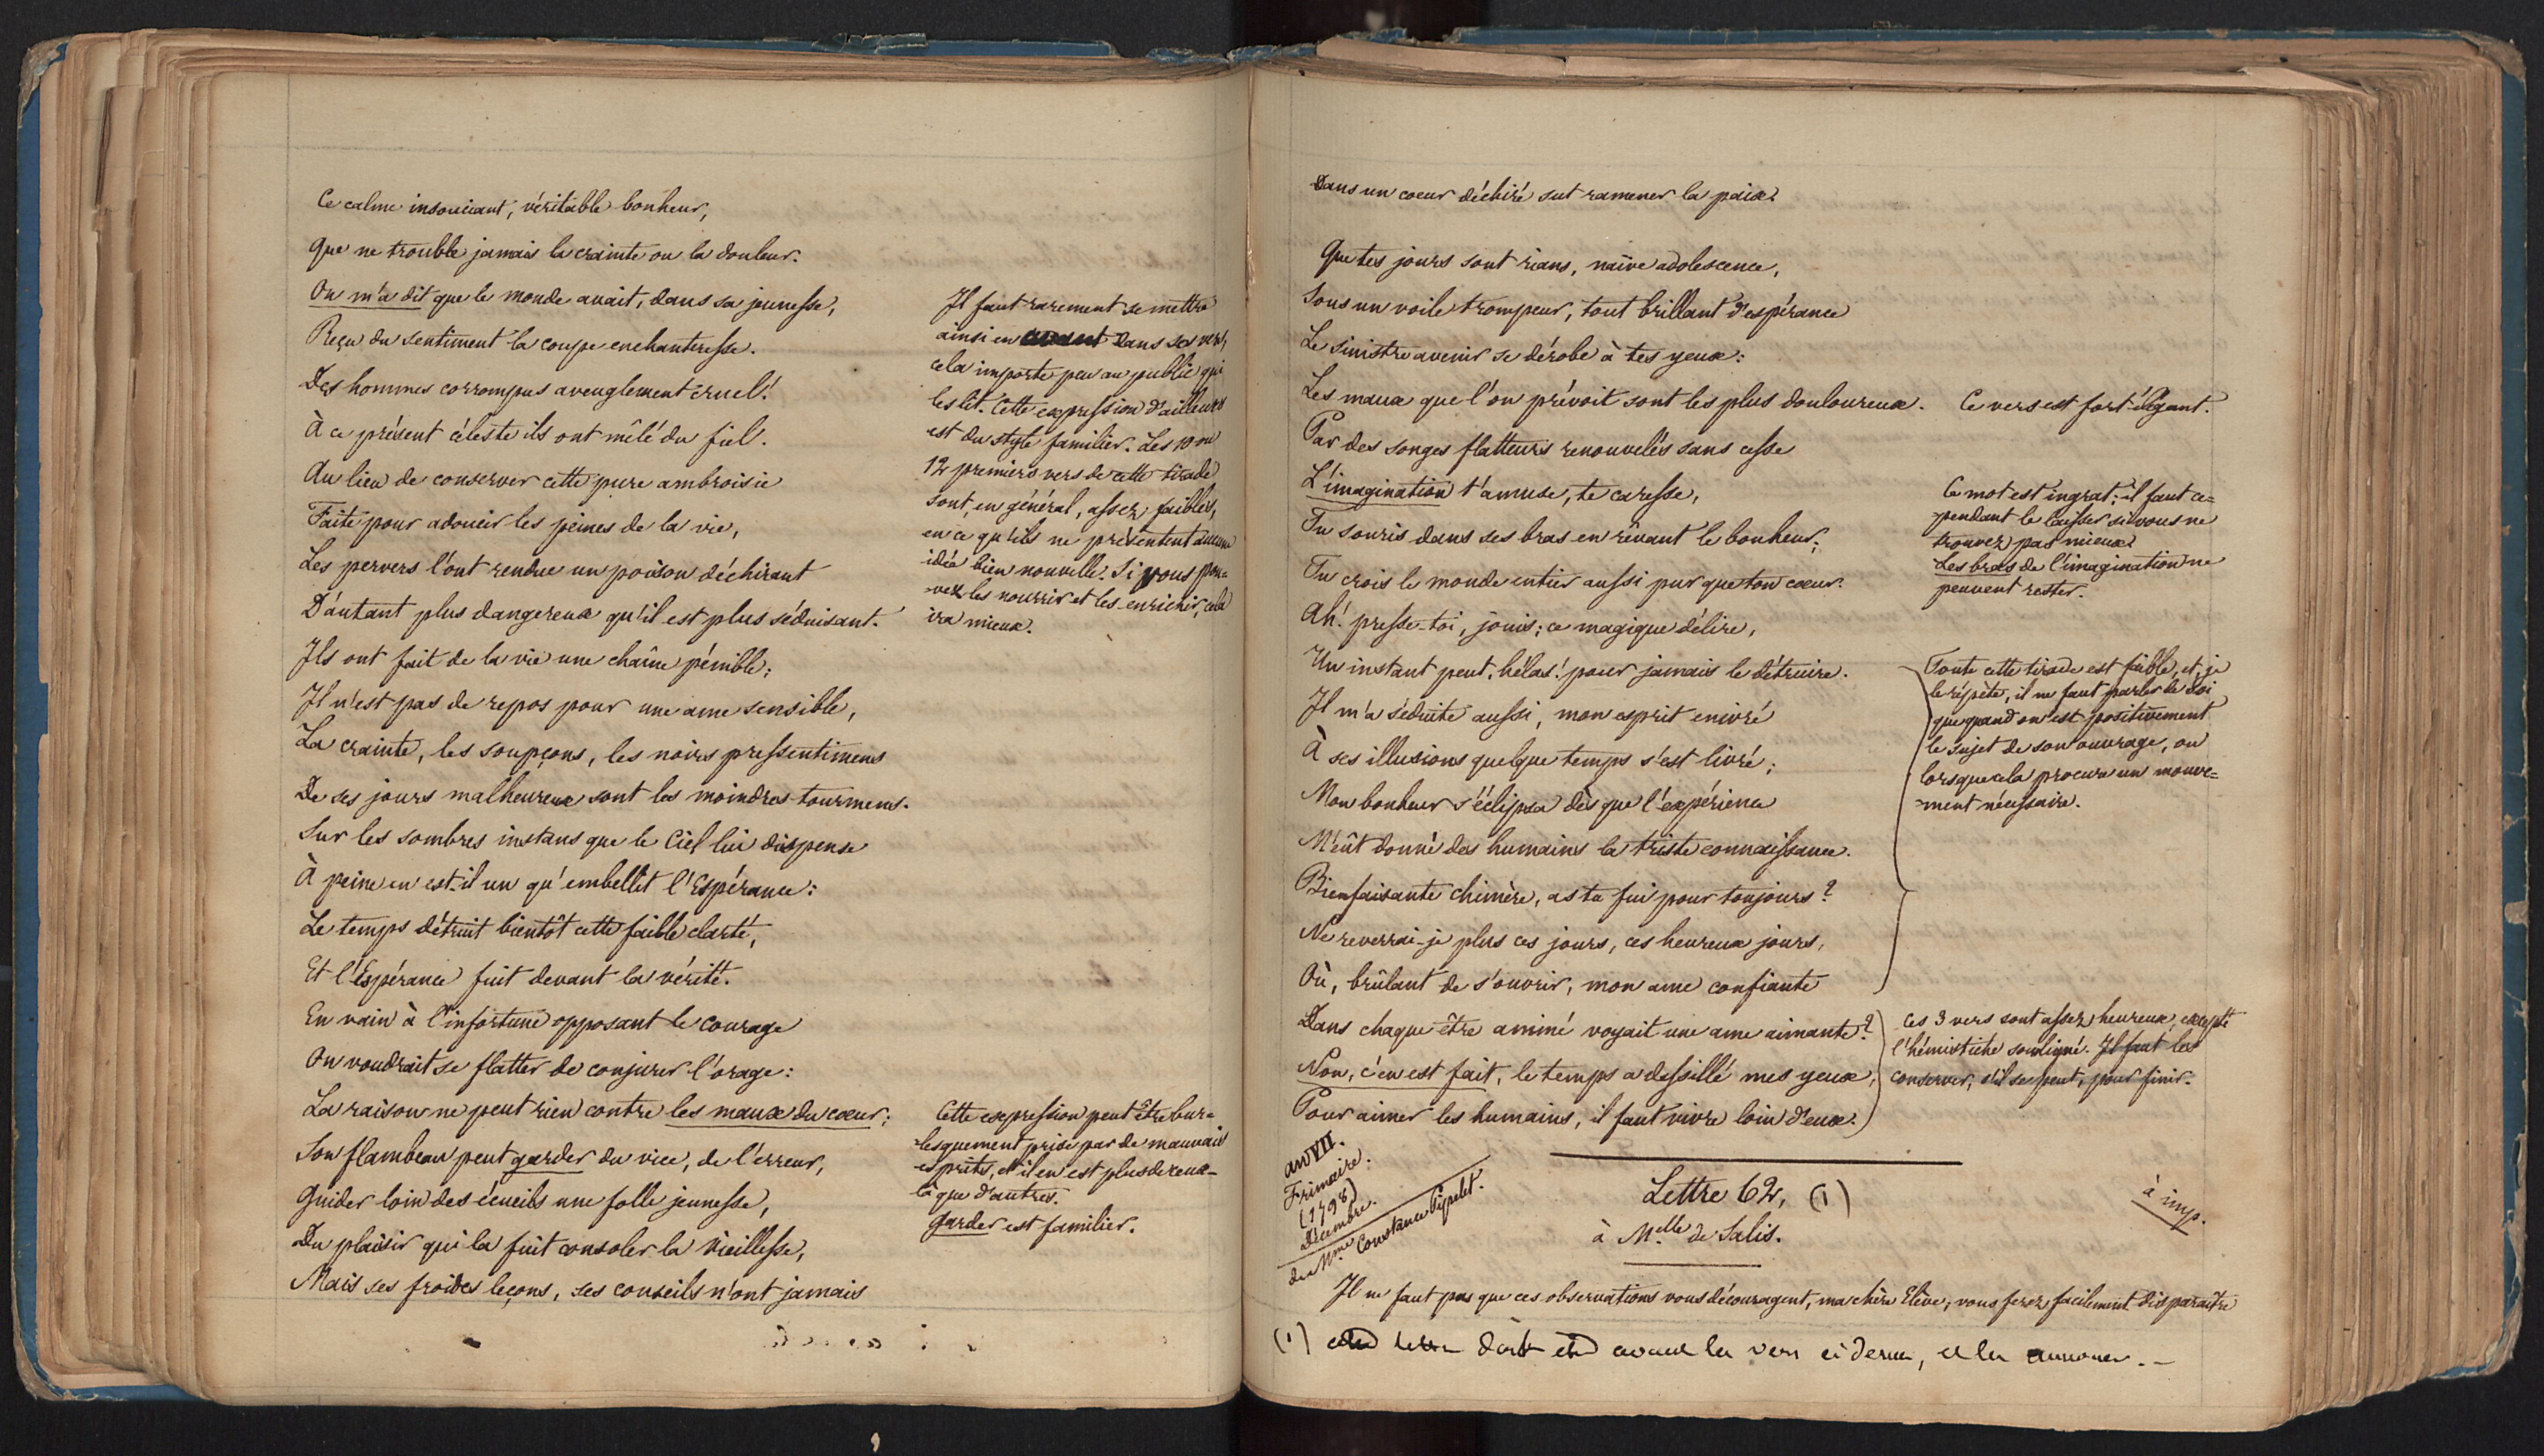 Ce calme insouciant, véritable bonheur,
Que ne trouble jamais la crainte ou la douleur.
On m'a dit que le monde avait, dans sa jeunesse,
Reçu du sentiment la coupe enchanteresse.
Des hommes corrompus aveuglement cruel!
À ce présent céleste ils ont mêlé du fiel.
Au lieu de conserver cette pure ambroisie
Faite pour adoucir les peines de la vie,
Les pervers l'ont rendue un poison déchirant
D'autant plus dangereux qu'il est plus séduisant.
Ils ont fait de la vie une chaîne pénible;
Il n'est pas de repos pour une ame sensible,
La crainte, les soupçons, les noirs pressentimens
De ses jours malheureux sont les moindres tourmens.
Sur les sombres instans que le Ciel lui dispense
À peine en est-il un qu'embellit l'Espérance:
Le temps détruit bientôt cette faible clarté,
Et l'Espérance fuit devant la vérité.
En vain à l'infortune opposant le courage
On voudrait se flatter de conjurer l'orage:
La raison ne peut rien contre les maux du cœur;
Son flambeau peut garder du vice, de l'erreur,
Guider loin des écueils une folle jeunesse,
Du plaisir qui la fuit consoler la vieillesse,
Mais ses froides leçons, ses conseils n'ont jamais
Il faut rarement se mettre
ainsi en avant dans ses vers,
cela importe peu au public qui
les lit. Cette expression d'ailleurs
est du style familier. Les 10 ou
12 premiers vers de cette tirade
sont, en général, assez faibles,
en ce qu'ils ne présentent aucune
idée bien nouvelle. Si vous pou=
-vez les nourrir et les enrichir, cela
ira mieux.
Cette expression peut être bur=
-lesquement prise par de mauvais
esprits, et il en est plus de ceux-
là que d'autres.
Garder est familier.
Dans un coeur déchiré sut ramener la paix.
Que tes jours sont rians, naïve adolescence,
Sous un voile trompeur, tout brillant d'espérance
Le sinistre avenir se dérobe à tes yeux:
Les maux que l'on prévoit sont les plus douloureux.
Par des songes flatteurs renouvelés sans cesse
L'imagination t'amuse, te caresse,
Tu souris dans ses bras en rêvant le bonheur;
Tu crois le monde entier aussi pur que ton cœur.
Ah! presse-toi, jouis; ce magique délire,
Un instant peut, hélas! pour jamais le détruire.
Il m'a séduite aussi, mon esprit enivré
À ses illusions quelque temps s'est livré;
Mon bonheur s'éclipsa dès que l'expérience
M'eût donné des humains la triste connaissance.
Bienfaisante chimère, as tu fui pour toujours?
Ne reverrai-je plus ces jours, ces heureux jours,
Où, brûlant de s'ouvrir, mon ame confiante
Dans chaque être animé voyait une ame aimante?
Non, c'en est fait, le temps a dessillé mes yeux,
Pour aimer les humains, il faut vivre loin d'eux.
Ce vers est fort élégant.
Ce mot est ingrat; il faut ce=
-pendant le laisser si vous ne
trouvez pas mieux.
Les bras de l'imagination ne
peuvent rester.
Toute cette tirade est faible, et, je
le répète, il ne faut parler de soi
que quand on est positivement
le sujet de son ouvrage, ou
lorsque cela procure un mouve=
-ment nécessaire.
Ces 3 vers sont assez heureux, excepté
l'hémistiche souligné. Il faut les
conserver, s'il se peut, pour finir.
an VII.
Frimaire.
(1798)
Décembre.
de Mme Constance Pipelet.
Lettre 62, (1)
à Melle de Salis.
à imp.
Il ne faut pas que ces observations vous découragent, ma chère Elève, vous ferez facilement disparaître
(1) cette lettre doit être avant les vers ci dessus, et les annoncer.-